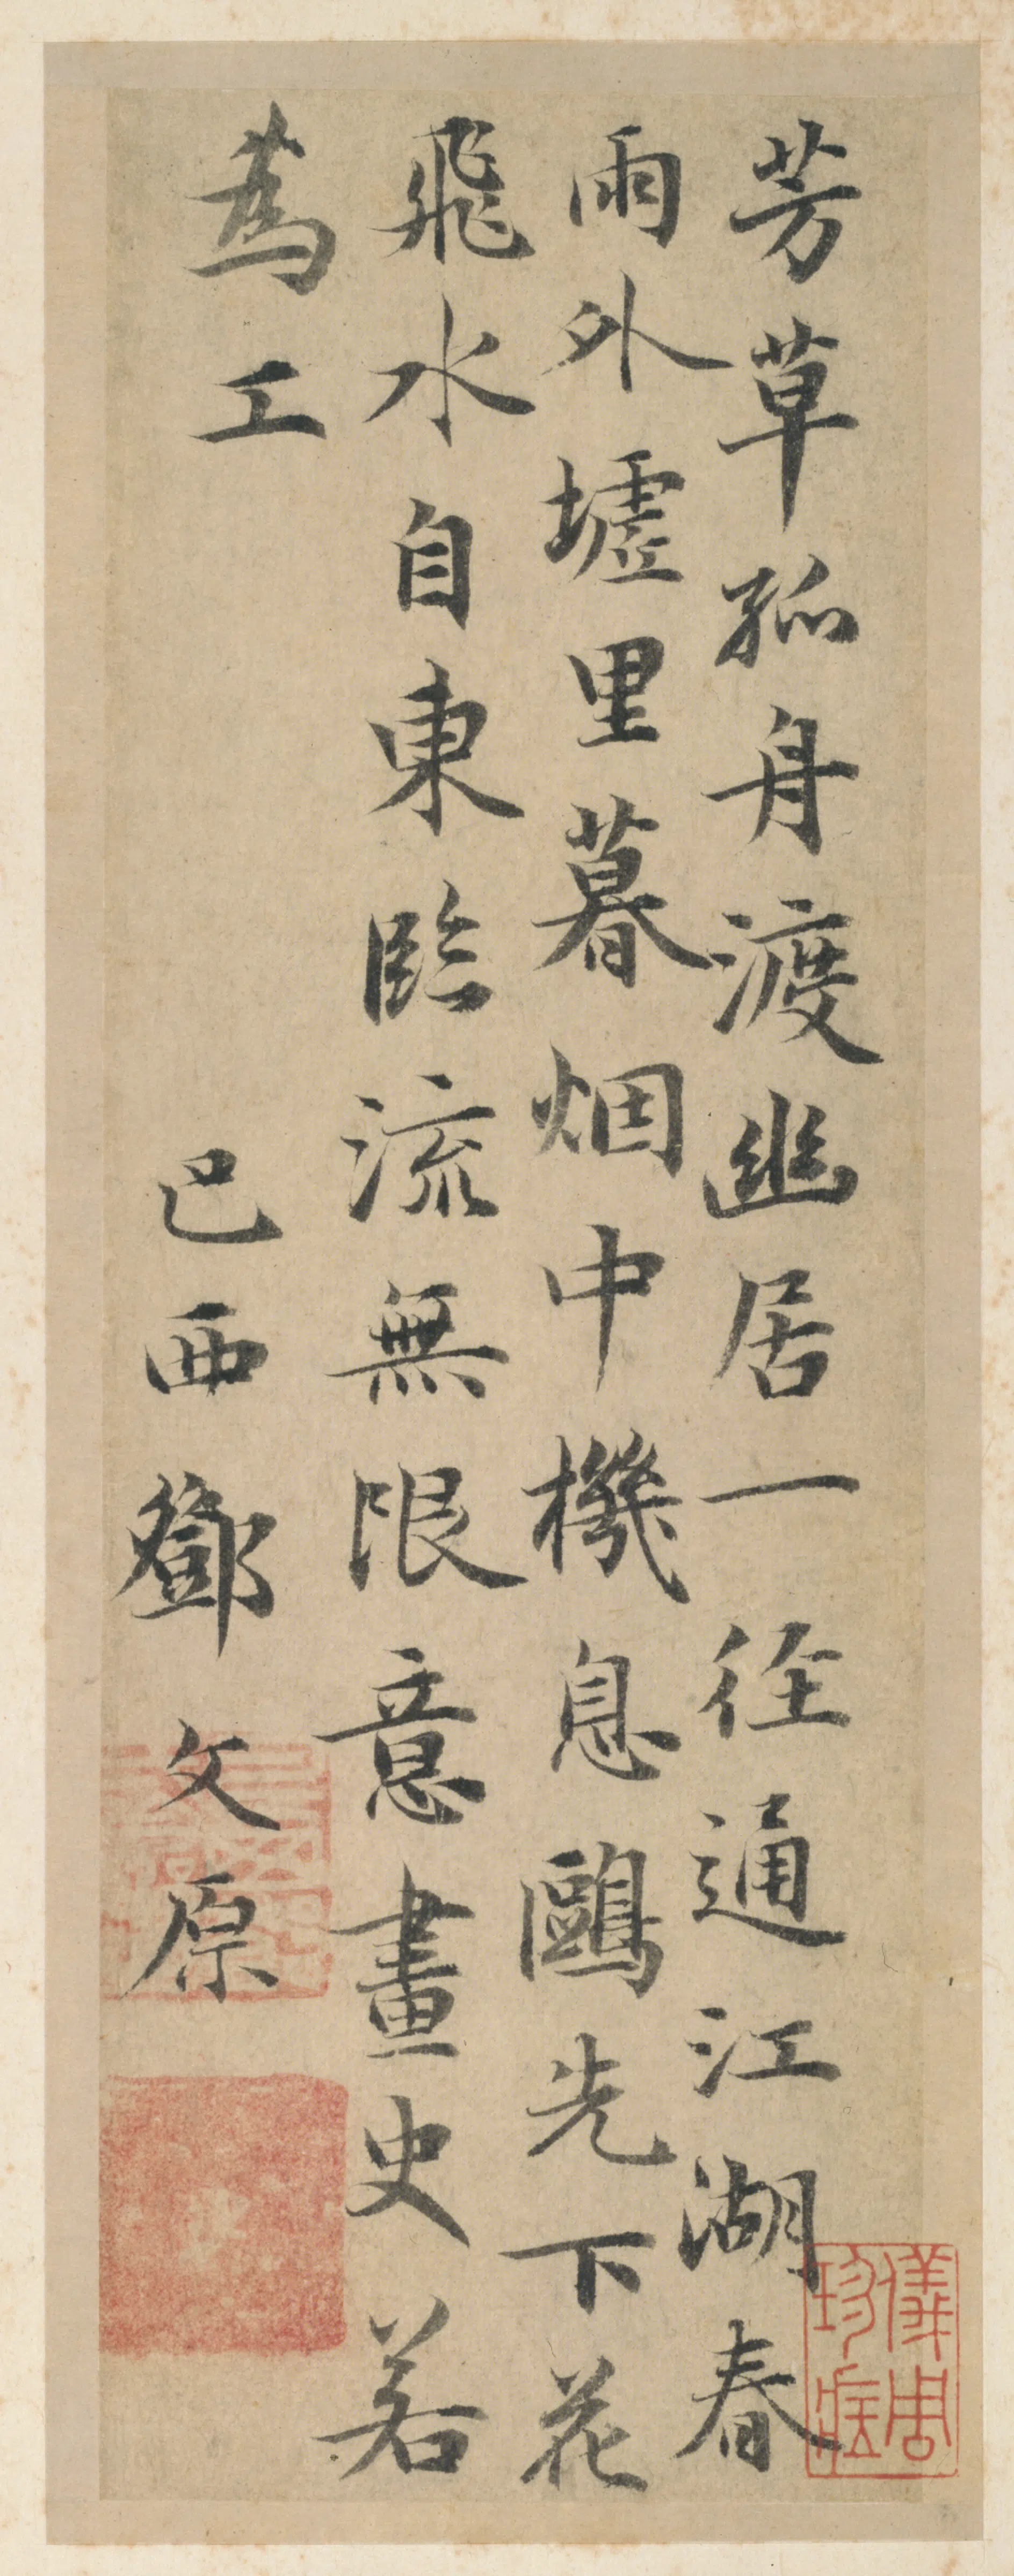 芳草孤舟渡幽居一徑通江湖春
雨外墟里暮烟中機息鷗先下花
飛水自東臨流無限意畫史若
爲工
巴西鄧文原
儀周珍藏